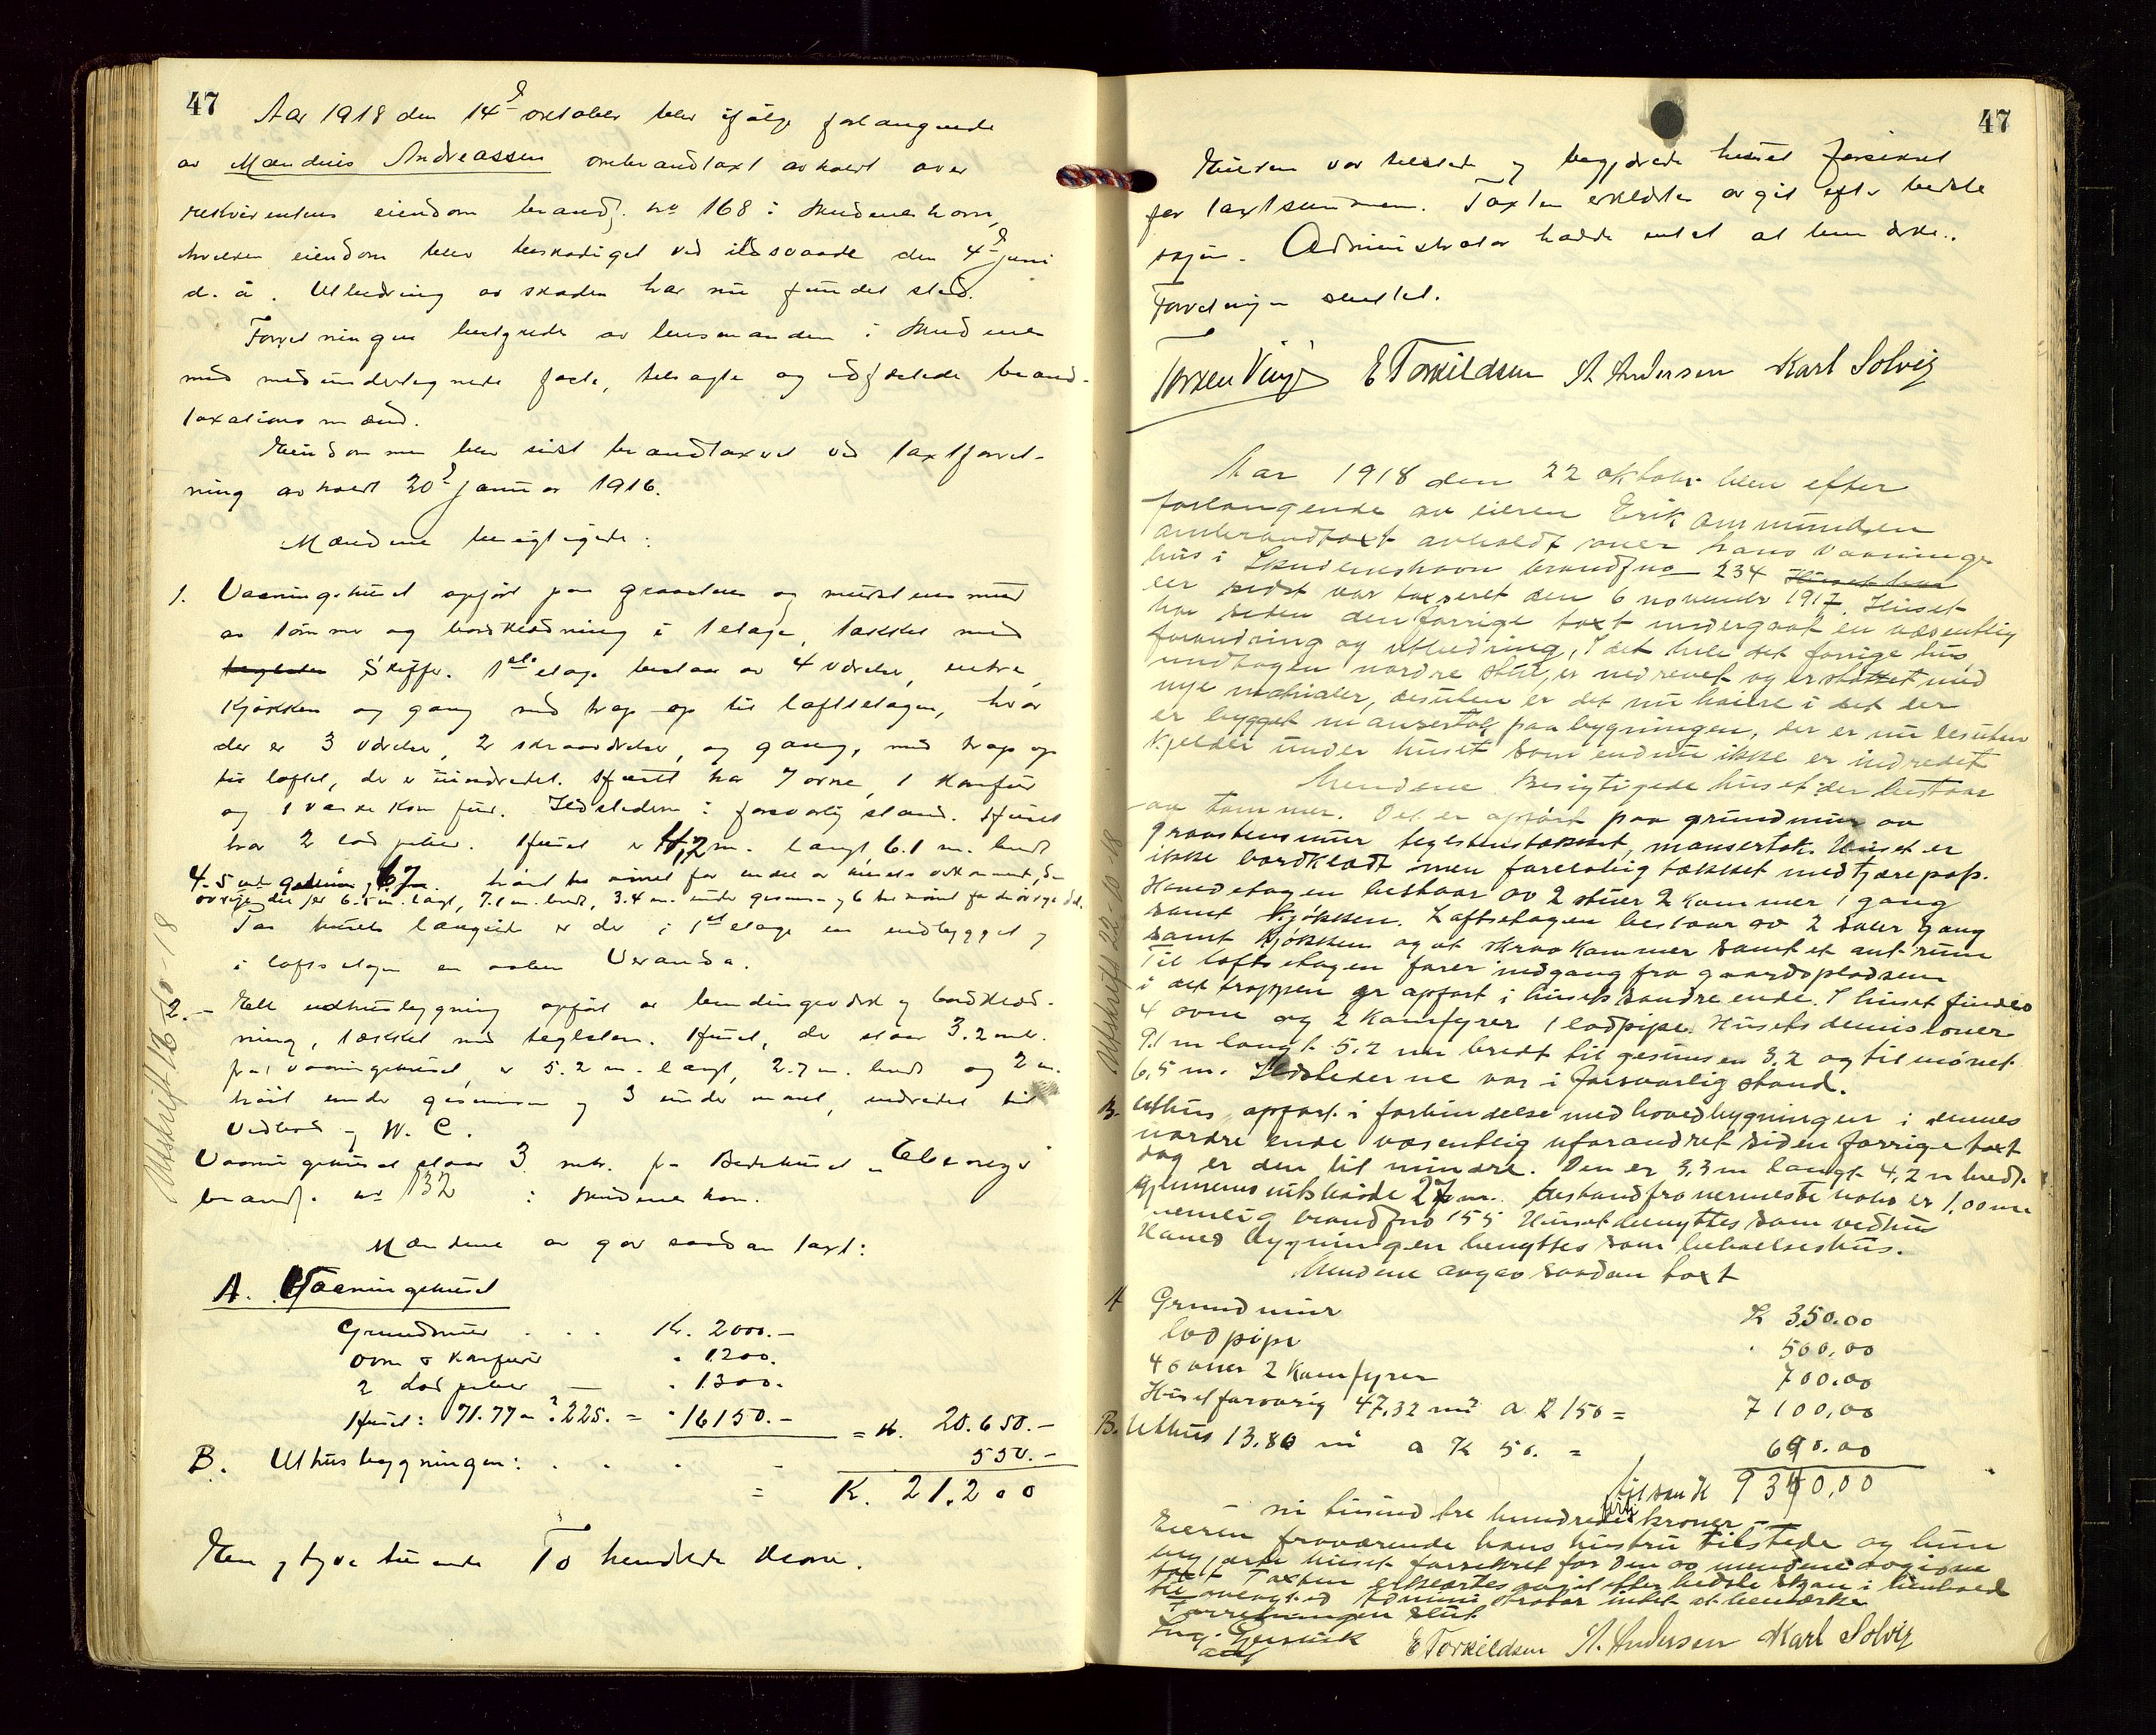 47
Aar 1918 den 14d oktober blev ifølge forlangende
av Mandius Andreassen ombrandtaxt avholdt over
rekvirentens eiendom brandf. no 168 i Skudeneshavn,
hvilken eiendom blev beskadiget ved ildsvaade den 4d juni
d. å. Utbedring av skaden har nu fundet sted.
Forretningen bestyredes av lensmanden i Skudenes
med medundertegnede faste, tilsagte og edfæstede brand-
taxationsmænd.
Eiendommen blev sidst brandtaxeret ved taxtforret-
ning avholdt 20d januar 1916.
Mændene besigtigede:
1. Vaaningshuset opført paa graasten og murstensmur
av tømmer og bordklædning i 1 etage, tækket med
teglsten Skiffer. 1ste etage bestaar av 4 værelser, entre,
kjøkken og gang med trap op til loftsetagen, hvor
der er 3 værelser, 2 skraaværelser, og gang, med trap op
til loftet, der er uindredet. Huset har 7 ovne, 1 komfur
og 1 vaskekomfur. Ildstederne i forsvarlig stand. Huset
har 2 lodpiber. Huset er 4,2 m. langt, 6.1 m. bredt
4.5 under gesims og 6,7 m. høit til mønet for endel av husets vedkommende, den
øvrige del er 6.5 m. langt, 7.1 m. bredt, 3.4 m. under gesimsen og 6 til mønet for det øvrige del.
Paa husets langside er der i 1ste etage en indbygget og
i loftsetagen en aaben Veranda.
2. - Ett uthusbygning opført av bindingsverk og bordklæd-
ning, tækket med teglsten. Huset, der staar 3.2 mtr.
fra vaaningshuset, er 5.2 m. langt, 2.7 m. bredt og 2 m.
høit under gesimsen og 3 under mønet, indredet til
Vedbod og W. C.
Vaaningshuset staar 3 mtr. fra Bedehuset "Ebenezer"
brandf. no 132 i Skudeneshavn.
Mændene avgav saadan taxt:
A. Vaaningshuset
Grundmur . . . Kr. 2000.-
Ovne & Komfurer " 1200.
2 Lodpiber - " 1300.
Huset: 71.77 m2. 225. = " 16150.- = Kr. 20.650.-
B. Uthusbygningen: . . . - 550.-
= K. 21.200
En og tyve tusende To hundrede kroner.
Utskrift 18/10-18
47
Eieren var tilstede og begjærede huset forsikret
for taxtsummen. Taxten erklærtes avgit efter bedste
skjøn. Administrator hadde intet at bemærke.
Forretningen sluttet.
Torkew Vinje E Torkildsen A. Andersen Karl Solvig
Aar 1918 den 22 oktober blev efter
forlangende av eieren Erik Ommundsen
ombrandtaxt avholdt over hans vaanings-
hus i Skudeneshavn brandf no 234 Huset har
der sidst var taxseret den 6 november 1917. Huset
har siden den forrige taxt undergaat en væsentlig
forandring og utbedring, I det hele det forrige hus
undtagen nordre stue, er nedrevet og erstattet med
nye materialer, desuten er det nu høiere i det der
er bygget mansertak paa bygningen, der er nu desuten
kjelder under huset som endnu ikke er indredet
Mændene Besigtigede huset der bestaar
av tømmer. Det er opført paa grundmur av
graastensmur teglstenstækket, mansertak. Huset er
ikke bordklædt men foreløbig tækket med tjærepap.
Hovedetagen bestaar av 2 stuer 2 kammer 1 gang
samt kjøkken. Loftsetagen bestaar av 2 saler gang
samt kjøkken og et skraakammer samt et ant. rum
Til loftsetagen fører indgang fra gaardspladsen
i det trappen er opført i husets søndre ende. I huset findes
4 ovne og 2 kamfyrer 1 lodpipe. Husets demisioner
9.1 m langt 5.2 m bredt til gesimsen 3,2 og til mønet
6,5 m. Ildstederne var i forsvarlig stand.
B. Uthus opført i forbindelse med hovedbygningen i dennes
nordre ende væsentlig uforandret siden forrige taxt
dog er den litt mindre. Den er 3,3 m langt 4,2 m bredt
gjennemsnitshøide 2,7 m. Avstand fra nermeste nabo er 1,00 m
nemlig brandf no 155 Huset benyttes som vedhus
Hovedbygningen benyttes som beboelseshus.
Mendene avgav saadan taxt
A Grundmur K 350.00
lodpipe " 500,00
4 ovner 2 Kamfyrer 700.00
Huset forøvrig 47,32 m2 a K 150 = 7100,00
B. Uthus 13.86 m2 a K 50. = 690.00
tilsam K 9340,00
ni tusind tre hundrede firti kroner -
Eieren fraværende hans hustru tilstede og hun
begjærte huset forsikret for den av mendene avgivne
taxt Taxten erklærtes avgit efter bedste skjøn i henhold
til avlagt ed Administrator intet at bemærke
Forretningen slut
E Torkildsen A. Andersen Karl Solvig
Utskrift 22-10-18